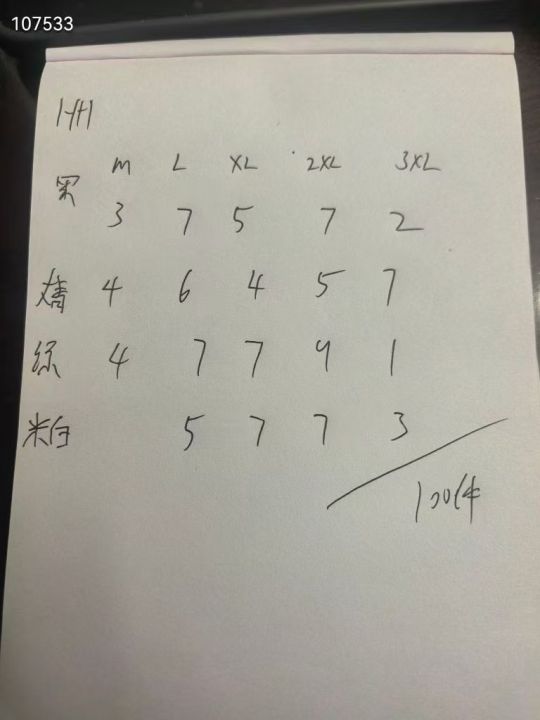 107533
1441
M L XL 2XL 3XL
黑
3 7 5 7 2
4 6 4 5 7
绿 4 7 7 9 1
米白 5 7 7 3
100件